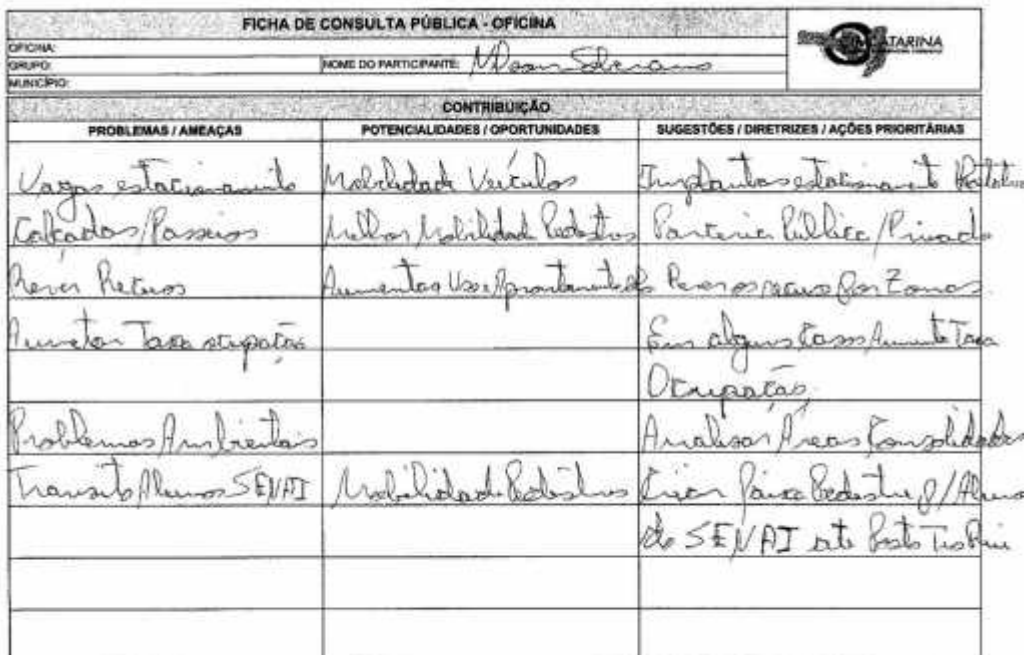 FICHA DE CONSULTA PÚBLICA - OFICINA
OFICINA:
GRUPO:
NOME DO PARTICIPANTE:
MUNICÍPIO:
CATARINA
CONTRIBUIÇÃO
PROBLEMAS / AMEAÇAS POTENCIALIDADES / OPORTUNIDADES SUGESTÕES / DIRETRIZES / AÇÕES PRIORITÁRIAS
Vagas estacionamento Mobilidade Veículos Implantar estacionamento
Calçadas/Passeios Melhor Mobilidade Pedestres Parceria Pública/Privada
Rever Recuos Aumentar Uso e Rever os recuos por Zonas.
Aumetar Taxa ocupação Em alguns Casos Aumento Taxa
Ocupação.
Problemas Ambientais Analisar Áreas Consolidadas
Transito Alunos SENAI Mobilidade Pedestres Criar faixa Pedestre p/ Alunos
do SENAI ate Posto